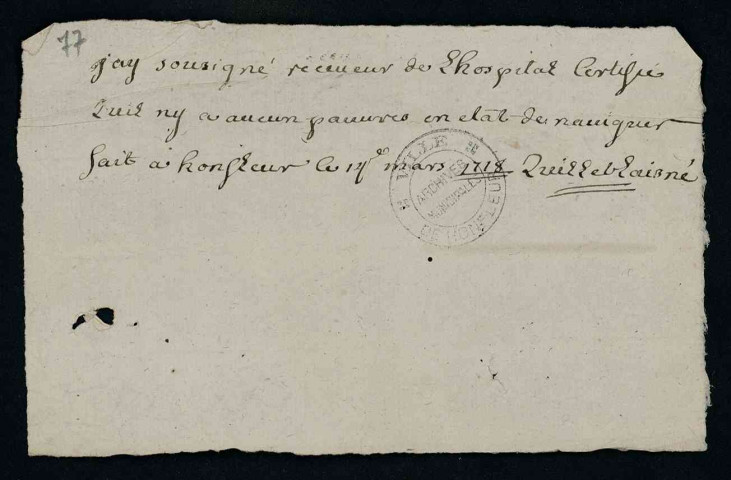 77
j'ay sousigné receveur de Lhospital Certifie
Quil ny a aucun pauvres en etat de naviguer
fait a honfleur le 14e mars 1718 Quillet Laisné
VILLE DE HONFLEUR
ARCHIVES
MUNICIPALES